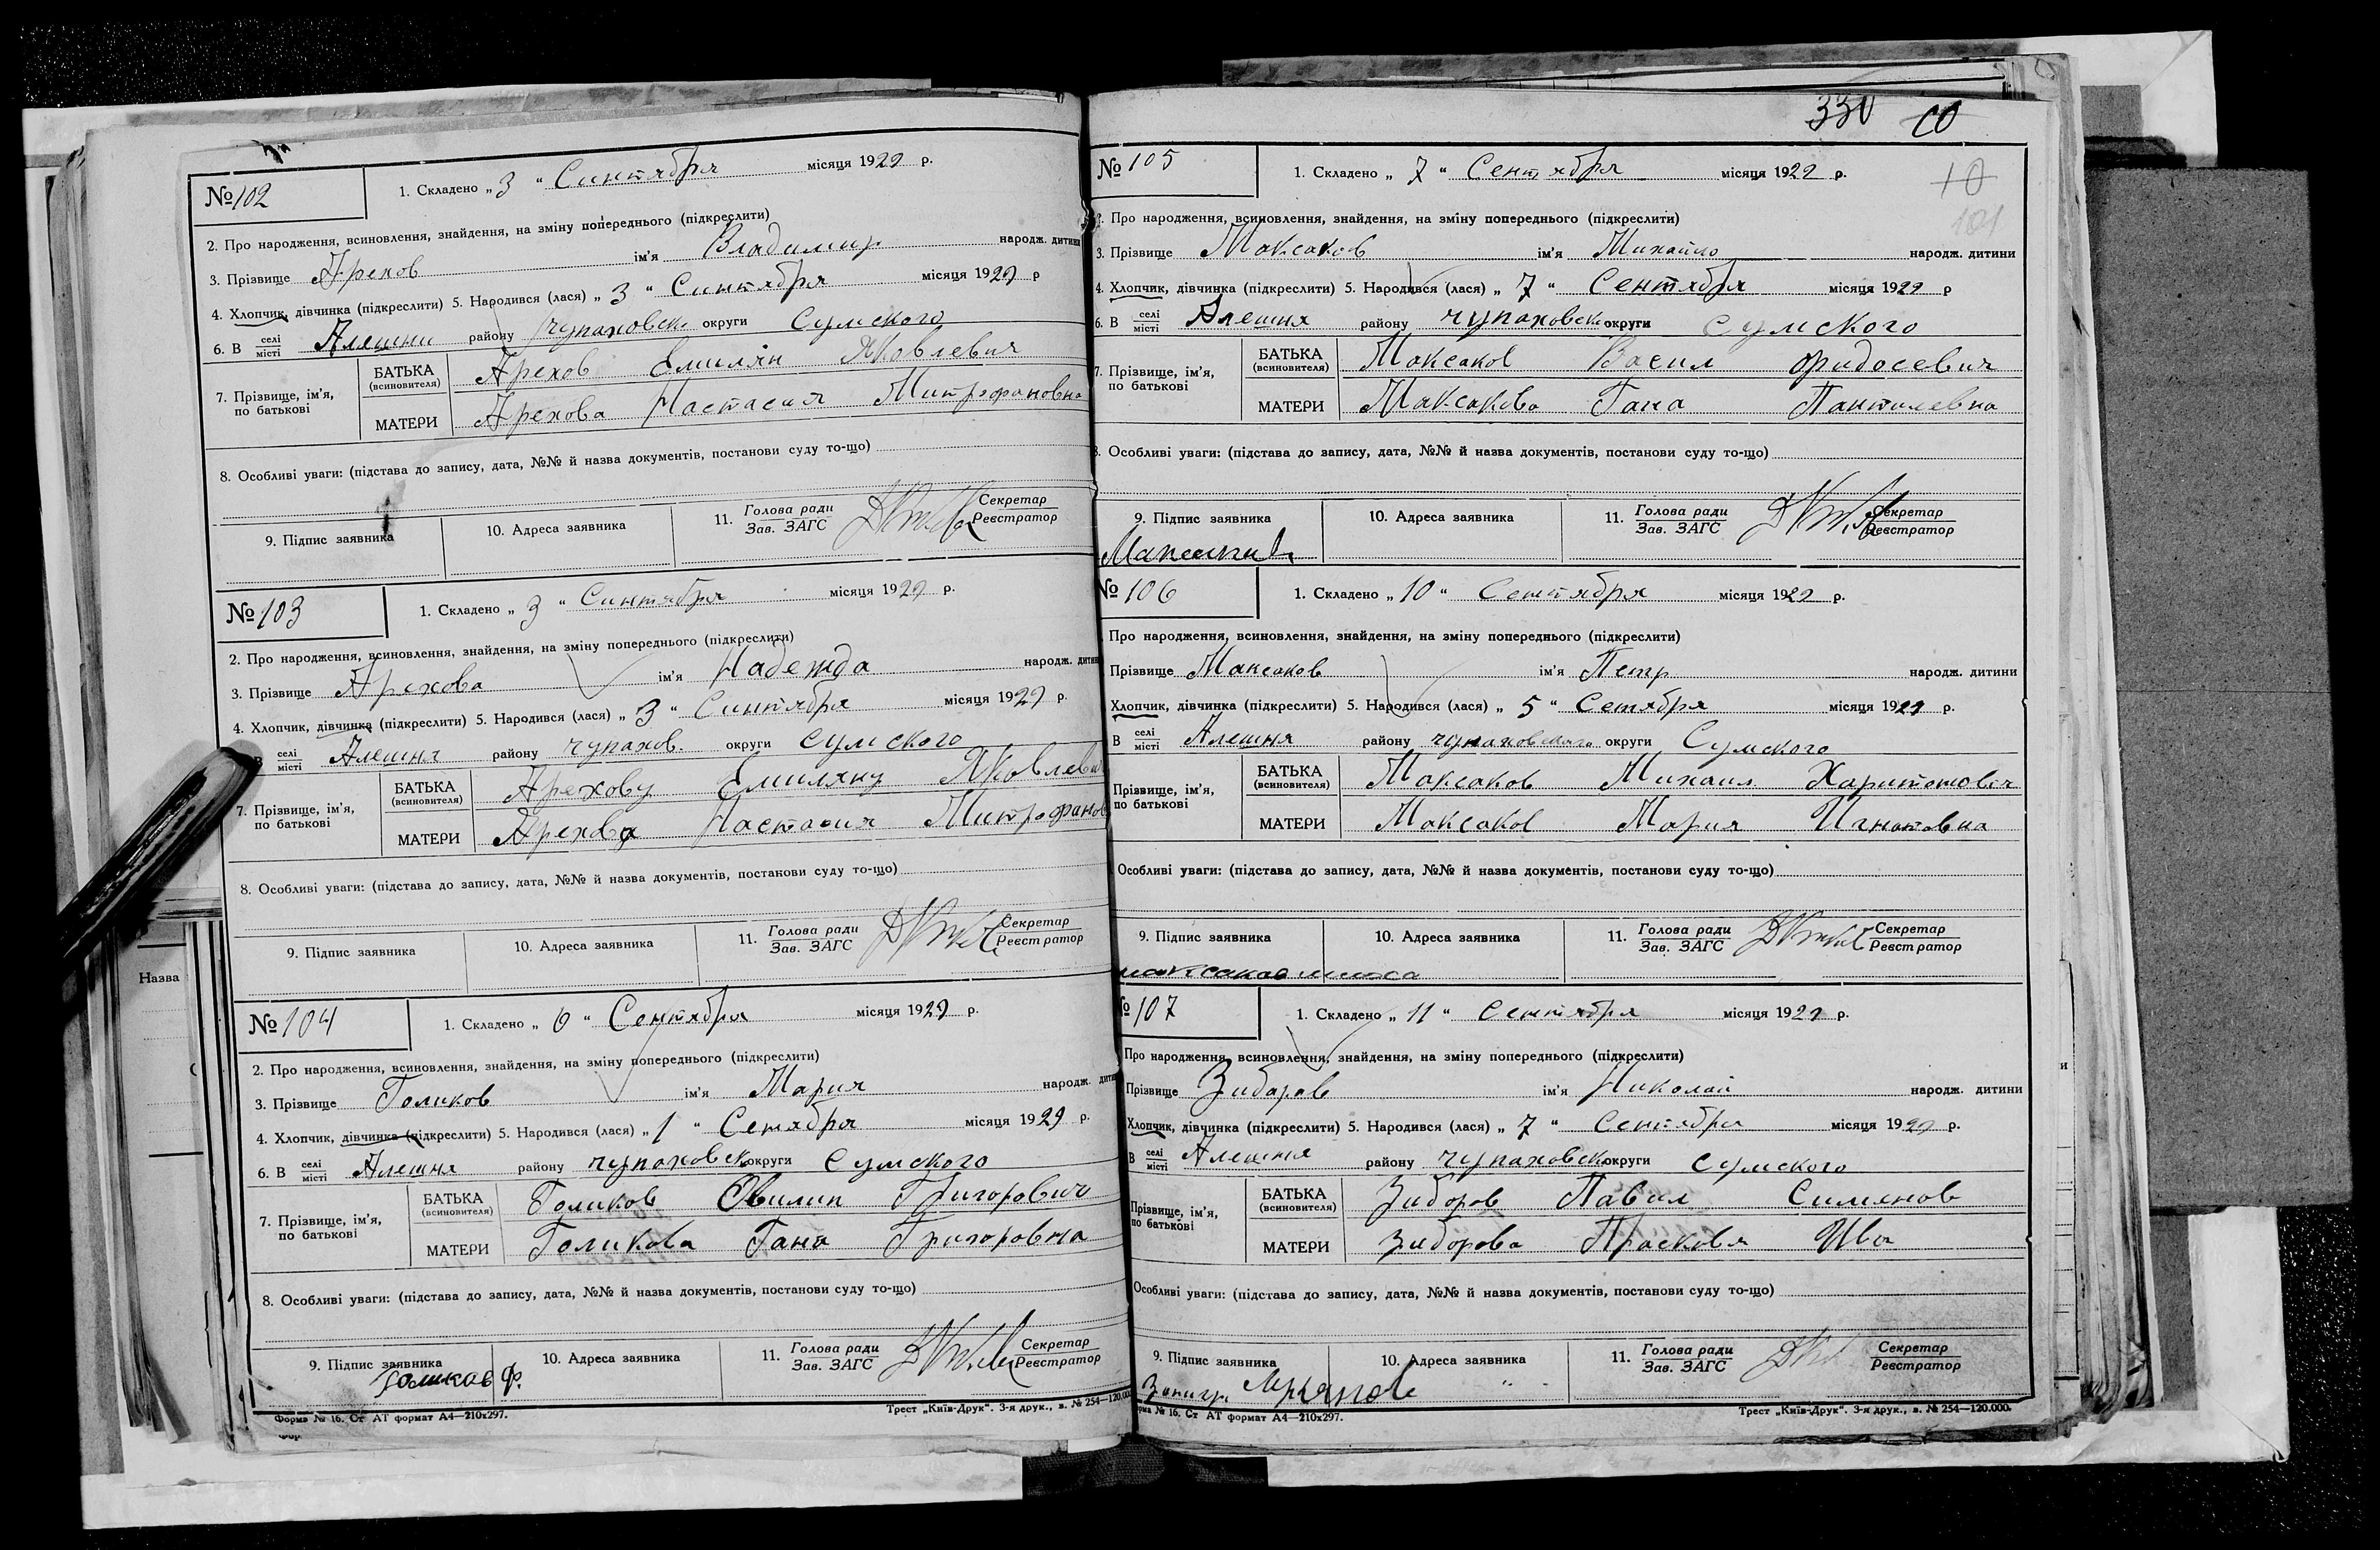 № 102
1. Складено „ 3 “ Синтября місяця 1929 р.
2. Про народження, всиновлення, знайдення, на зміну попереднього (підкреслити)
3. Прізвище Арехов ім'я Владимир народж. дитини
4. Хлопчик, дівчинка (підкреслити) 5. Народився (лася) „ 3 “ Синтября місяця 1929 р
6. В селі місті Алешни району чупаховск. округи Сумского
7. Прізвище, ім'я, по батькові
БАТЬКА (всиновителя) Арехов Емилян Яковлевич
МАТЕРИ Арехова Настасия Митрофановна
8. Особливі уваги: (підстава до запису, дата, №№ й назва документів, постанови суду то-що)
9. Підпис заявника 10. Адреса заявника 11. Голова ради Зав. ЗАГС Секретар Реєстратор
№ 103
1. Складено „ 3 “ Синтября місяця 1929 р.
2. Про народження, всиновлення, знайдення, на зміну попереднього (підкреслити)
3. Прізвище Арехова ім'я Надежда народж. дитин
4. Хлопчик, дівчинка (підкреслити) 5. Народився (лася) „ 3 “ Синтября місяця 1929 р.
В селі місті Алешня району чупахов. округи Сумского
7. Прізвище, ім'я, по батькові
БАТЬКА (всиновителя) Арехову Емиляну Яковлеви
МАТЕРИ Арехова Настасия Митрофанов
8. Особливі уваги: (підстава до запису, дата, №№ й назва документів, постанови суду то-що)
9. Підпис заявника 10. Адреса заявника 11. Голова ради Зав. ЗАГС Секретар Реєстратор
Назва
№ 104
1. Складено „ 6 “ Сентября місяця 1929 р.
2. Про народження, всиновлення, знайдення, на зміну попереднього (підкреслити)
3. Прізвище Голиков ім'я Мария народж. дити
4. Хлопчик, дівчинка (підкреслити) 5. Народився (лася) „ 1 “ Сетября місяця 1929 р.
6. В селі місті Алешня району чупаховск округи Сумского
7. Прізвище, ім'я, по батькові
БАТЬКА (всиновителя) Голиков Григорович
МАТЕРИ Голикова Гана Григоровна
8. Особливі уваги: (підстава до запису, дата, №№ й назва документів, постанови суду то-що)
9. Підпис заявника 10. Адреса заявника 11. Голова ради Зав. ЗАГС Секретар Реєстратор
Голиков Ф.
Форма № 16. Ст АТ формат А4—210х297. Трест „Київ-Друк“. 3-я друк., в. № 254—120.000
330 10
10
101
№ 105
1. Складено „ 7 “ Сентября місяця 1929 р.
2. Про народження, всиновлення, знайдення, на зміну попереднього (підкреслити)
3. Прізвище Максаков ім'я Михайло народж. дитини
4. Хлопчик, дівчинка (підкреслити) 5. Народився (лася) „ 7 “ Сентября місяця 1929 р
6. В селі місті Алешня району чупаховск округи Сумского
7. Прізвище, ім'я, по батькові
БАТЬКА (всиновителя) Максаков Васил Фидосевич
МАТЕРИ Максакова Гана Пантилевна
8. Особливі уваги: (підстава до запису, дата, №№ й назва документів, постанови суду то-що)
9. Підпис заявника 10. Адреса заявника 11. Голова ради Зав. ЗАГС Секретар Реєстратор
№ 106
1. Складено „ 10 “ Сентября місяця 1929 р.
Про народження, всиновлення, знайдення, на зміну попереднього (підкреслити)
Прізвище Максаков ім'я Петр народж. дитини
Хлопчик, дівчинка (підкреслити) 5. Народився (лася) „ 5 “ Сетября місяця 1929 р.
В селі місті Алешня району чупаховского округи Сумского
Прізвище, ім'я, по батькові
БАТЬКА (всиновителя) Максаков Михаил Харитонович
МАТЕРИ Максаков Мария Игнатовна
Особливі уваги: (підстава до запису, дата, №№ й назва документів, постанови суду то-що)
9. Підпис заявника 10. Адреса заявника 11. Голова ради Зав. ЗАГС Секретар Реєстратор
максаков миша
№ 107
1. Складено „ 11 “ Сентября місяця 1929 р.
Про народження, всиновлення, знайдення, на зміну попереднього (підкреслити)
Прізвище Зиборов ім'я Николай народж. дитини
Хлопчик, дівчинка (підкреслити) 5. Народився (лася) „ 7 “ Сентября місяця 1929 р.
В селі місті Алешня району чупаховск округи Сумского
Прізвище, ім'я, по батькові
БАТЬКА (всиновителя) Зиборов Павил Симянов
МАТЕРИ Зиборова Прасковя Ива
Особливі уваги: (підстава до запису, дата, №№ й назва документів, постанови суду то-що)
9. Підпис заявника 10. Адреса заявника 11. Голова ради Зав. ЗАГС Секретар Реєстратор
рма № 16. Ст АТ формат А4—210х297. Трест „Київ-Друк“. 3-я друк., в. № 254—120.000.